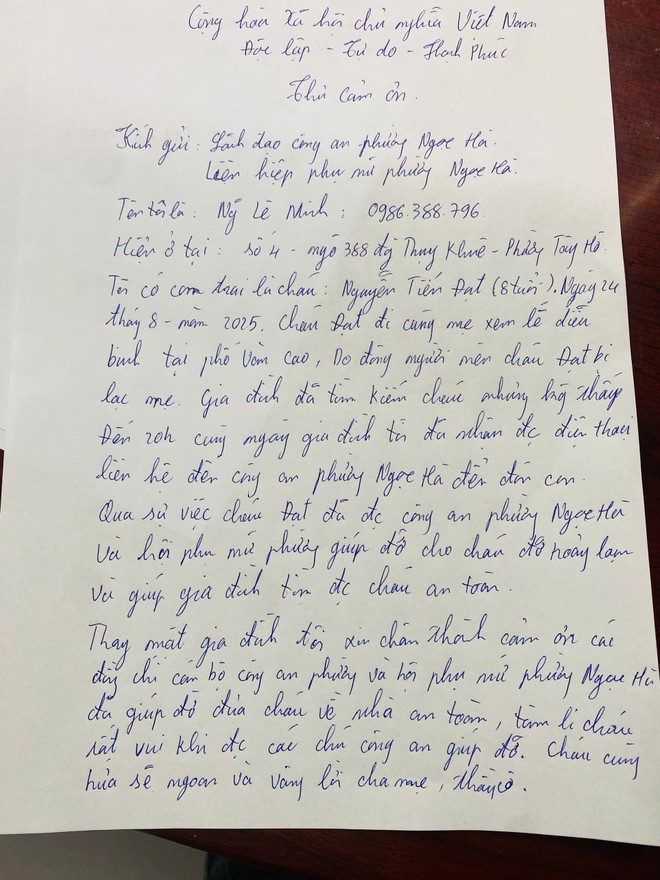 Cộng hòa xã hội chủ nghĩa Việt Nam
Độc lập - Tự do - Hạnh Phúc
Thư cảm ơn.
Kính gửi: Lãnh đạo công an phường Ngọc Hà.
Liên hiệp phụ nữ phường Ngọc Hà.
Tên tôi là: Ng Lê Minh: 0986.388.796.
Hiện ở tại: số 4 - ngõ 388 đg Thụy Khuê - Phường Tây Hồ.
Tôi có con trai là cháu: Nguyễn Tiến Đạt (8 tuổi). Ngày 24
tháng 8 - năm 2025. Cháu Đạt đi cùng mẹ xem lễ diễu
binh tại phố Văn Cao, Do đông người nên cháu Đạt bị
lạc mẹ. Gia đình đã tìm kiếm cháu nhưng ko thấy
Đến 20h cùng ngày gia đình tôi đã nhận đc điện thoại
liên hệ đến công an phường Ngọc Hà đến đón con.
Qua sự việc cháu Đạt đã đc công an phường Ngọc Hà
và hội phụ nữ phường giúp đỡ cho cháu đỡ hoảng loạn
và giúp gia đình tìm đc cháu an toàn.
Thay mặt gia đình tôi xin chân thành cảm ơn các
đồng chí cán bộ công an phường và hội phụ nữ phường Ngọc Hà
đã giúp đỡ đưa cháu về nhà an toàn, tâm lí cháu
rất vui khi đc các chú công an giúp đỡ. Cháu cũng
hứa sẽ ngoan và vâng lời cha mẹ, thầy cô.